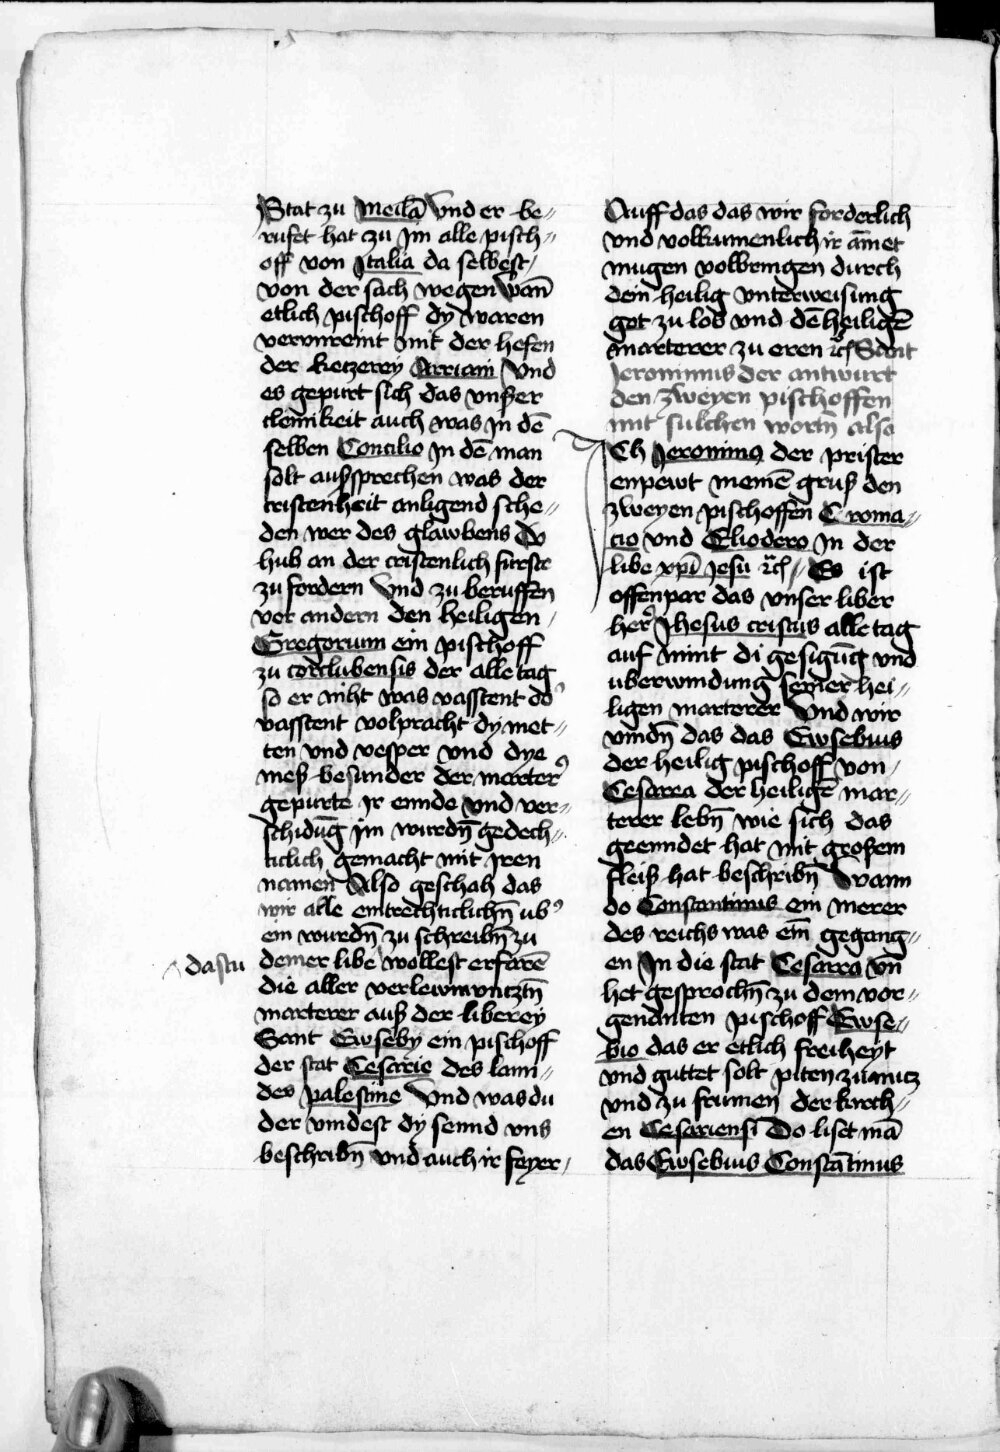 Stat zu Meilā Vnd er be〃
rufet hat zu Jm alle pisch〃
off von Jtalia da selbest
von der sach wegen Wan̄
etlich pischoff dy waren
vervnreint mit der hefen
der ketzerey Arriani Vnd
es gepurt sich das vnßer
clemikeit auch was Jn dē
selben Concilio Jn dē man
solt außsprechen was der
cristenheit anligend sche〃
den wer des glawbens Do
hub an der cristenlich furste
zu fordern Vnd zu beruffen
vor andern den heiligen
Gregorium ein pischoff
zu cordubensis der alle tag
so er niht was vasstent od̕
vasstent volpracht dy met〃
ten vnd vesper vnd dye
meß besunder der marter̕
gepurte Jr ennde vnd ver〃
schidūg Jm wurdn̄ gedech〃
ticlich gemacht mit Jren
namen Also geschah das
wir alle eintrechticlichn̄ ub̕
ein wurdn̄ zu schreibn̄ zu
dastu
deiner libe wollest erfarē
die aller verlewmuntztn̄
marterer auß der liberey
Sant Ewseby ein pischoff
der stat Cesarie des lann〃
des palestine Vnd was du
der vindest dy sennd vns
beschribn̄ vnd auch ir feyer
Auff das das wir forderlich
vnd volkumenlich ir am̄et
mugen volbringen durch
dein heilig vnterweisung
got zu lob vnd dē heiligē
marterer zu eren ꝛc̄ Sant
Jeronimus der antwurt
den zweyen pischoffen
mit sulchen wortn̄ also
Ch Jeronimus der prister
enpewt meinē gruß den
zweyen pischoffen Croma〃
cio vnd Eliodero Jn der
libe xpī Jesu ꝛc̄ Es ist
offenpar das vnser liber
her̕ Jhesus cristus alle tag
auf nimt di gesigūg vnd
uberwindung seiner hei〃
ligen marterer Vnd wir
vindn̄ das das Ewsebius
der heilig pischoff von
Cesarea der heiligē mar〃
terer lebn̄ wie sich das
geenndet hat mit großem
fleiß hat beschribn̄ Wann
do Constantinus ein merer
des reichs was ein̄ gegang〃
en Jn die stat Cesarea vn̄
het gesprochn̄ zu dem vor〃
genanten pischoff Ewse〃
bio das er etlich freiheyt
vnd guttet solt piten zu nutz
vnd zu frumen der kirch〃
en Cesariensi Do liset mā
das Ewsebius Constātinus